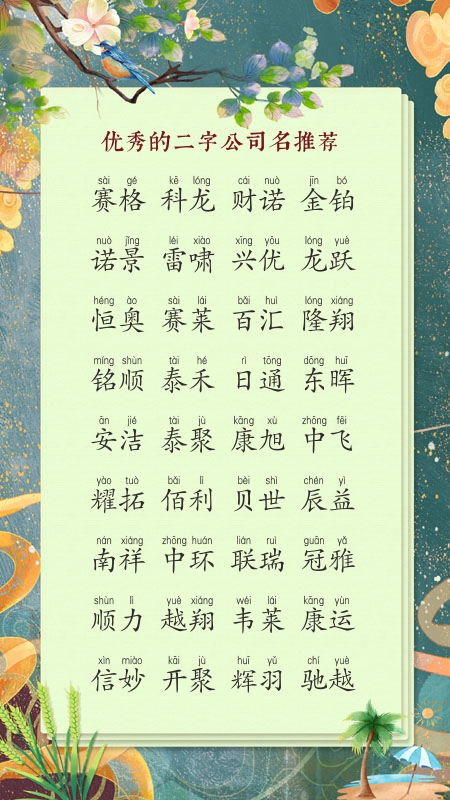 优秀的二字公司名推荐
sài gé kē lóng cái nuò jīn bó
赛格 科龙 财诺 金铂
nuò jǐng léi xiào xīng yōu lóng yuè
诺景 雷啸 兴优 龙跃
héng ào sài lái bǎi huì lóng xiáng
恒奥 赛莱 百汇 隆翔
míng shùn tài hé rì tōng dōng huī
铭顺 泰禾 日通 东晖
ān jié tài jù kāng xù zhōng fēi
安洁 泰聚 康旭 中飞
yào tuò bǎi lì bèi shì chén yì
耀拓 佰利 贝世 辰益
nán xiáng zhōng huán lián ruì guān yǎ
南祥 中环 联瑞 冠雅
shùn lì yuè xiáng wéi lái kāng yùn
顺力 越翔 韦莱 康运
xìn miào kāi jù huī yǔ chí yuè
信妙 开聚 辉羽 驰越